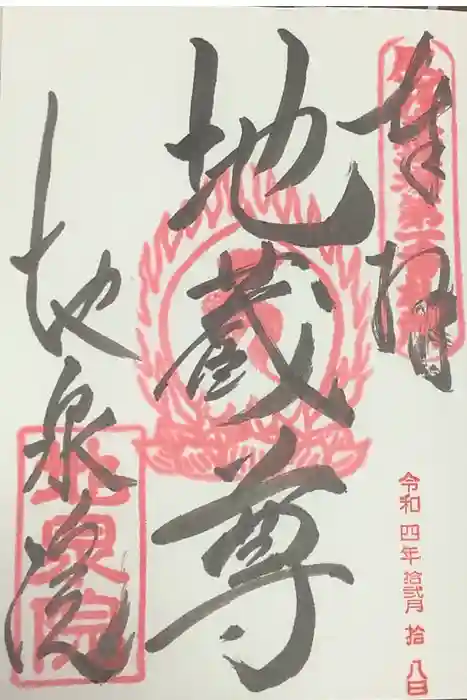 奉拝
地蔵尊
令和四年拾弐月拾八日
地泉院
地泉院